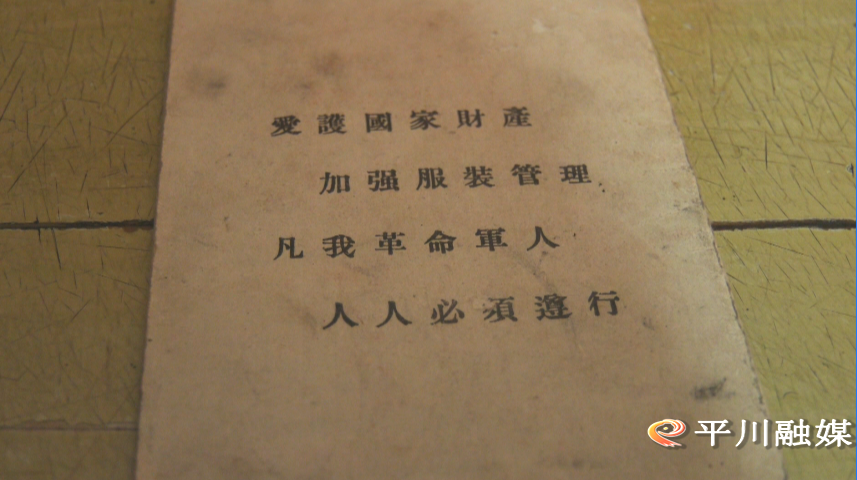 愛護國家財產
加强服裝管理
凡我革命軍人
人人必須遵行
平川融媒